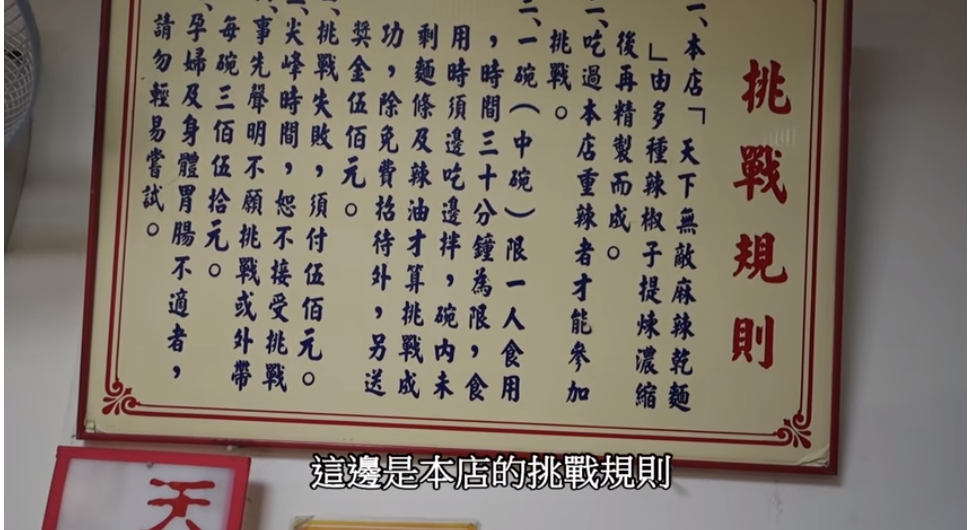 挑戰規則
一、本店「天下無敵麻辣乾麵
」由多種辣椒子提煉濃縮
後再精製而成。
二、吃過本店重辣者才能參加
挑戰。
三、一碗(中碗)限一人食用
,時間三十分鐘為限,食
用時須邊吃邊拌,碗內未
剩麵條及辣油才算挑戰成
功,除免費招待外,另送
獎金伍佰元。
、挑戰失敗,須付伍佰元。
、尖峰時間,恕不接受挑戰
、事先聲明不願挑戰或外帶
每碗三佰伍拾元。
、孕婦及身體胃腸不適者,
請勿輕易嘗試。
天
這邊是本店的挑戰規則